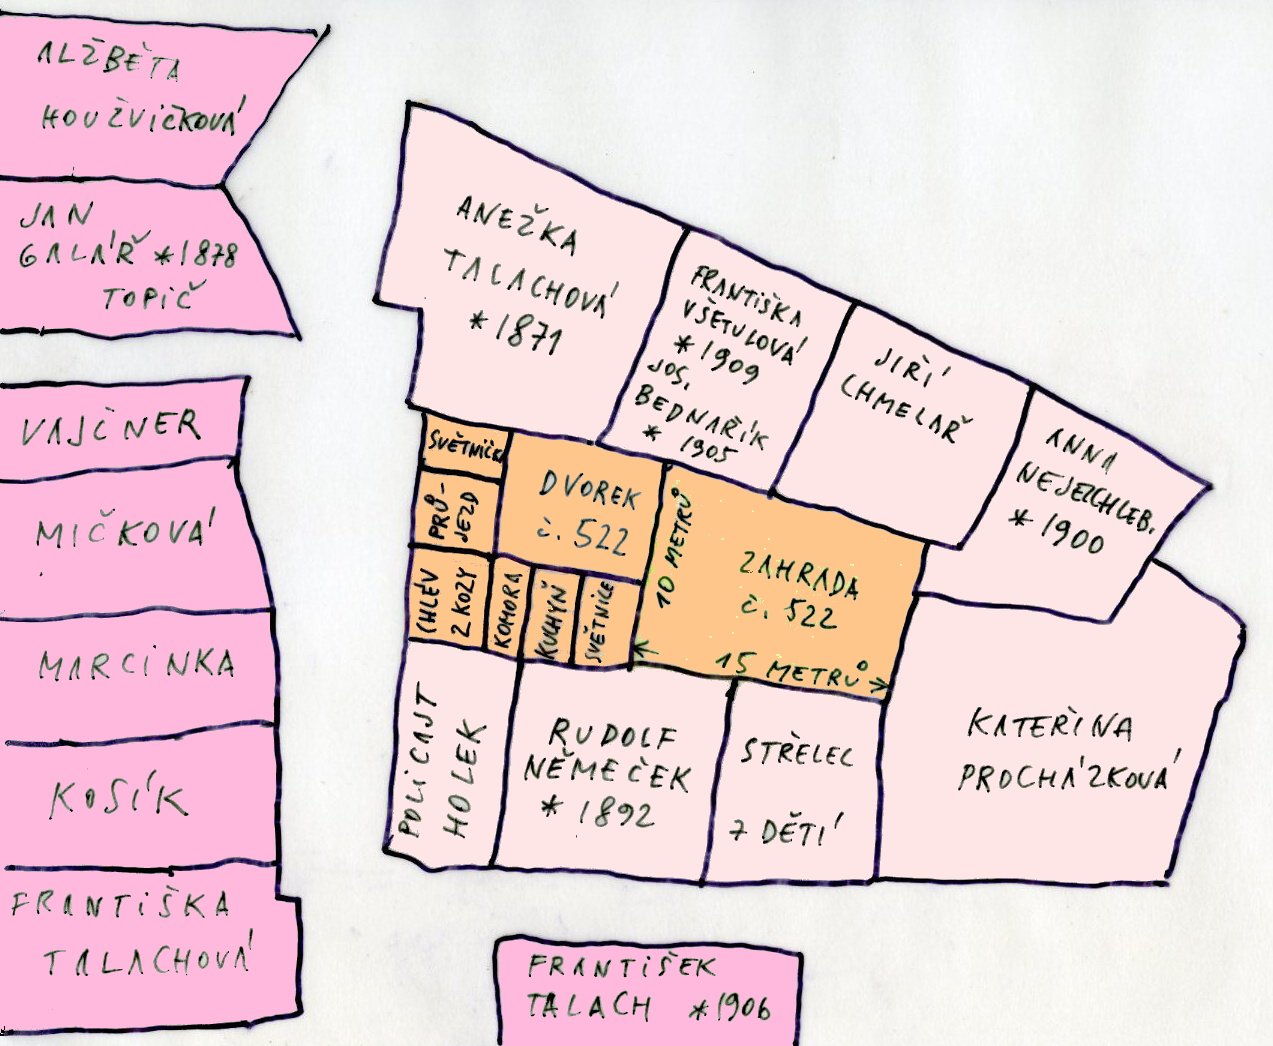 ALŽBĚTA
HOUŽVIČKOVÁ
JAN
GALÁŘ *1878
TOPIČ
VAJČNER
MIČKOVÁ
MARCINKA
KOSÍK
FRANTIŠKA
TALACHOVÁ
ANEŽKA
TALACHOVÁ
* 1871
FRANTIŠKA
VŠETULOVÁ
* 1909
JOS.
BEDNAŘÍK
* 1905
JIŘÍ
CHMELAŘ
ANNA
NEJEZCHLEB.
* 1900
SVĚTNIČK
PRŮ-
JEZD
DVOREK
č. 522
10 METRŮ
ZAHRADA
č. 522
15 METRŮ
CHLÉV
2 KOZY
KOMORA
KUCHYŇ
SVĚTNICE
POLICAJT
HOLEK
RUDOLF
NĚMEČEK
* 1892
STŘELEC
7 DĚTÍ
KATEŘINA
PROCHÁZKOVÁ
FRANTIŠEK
TALACH *1906